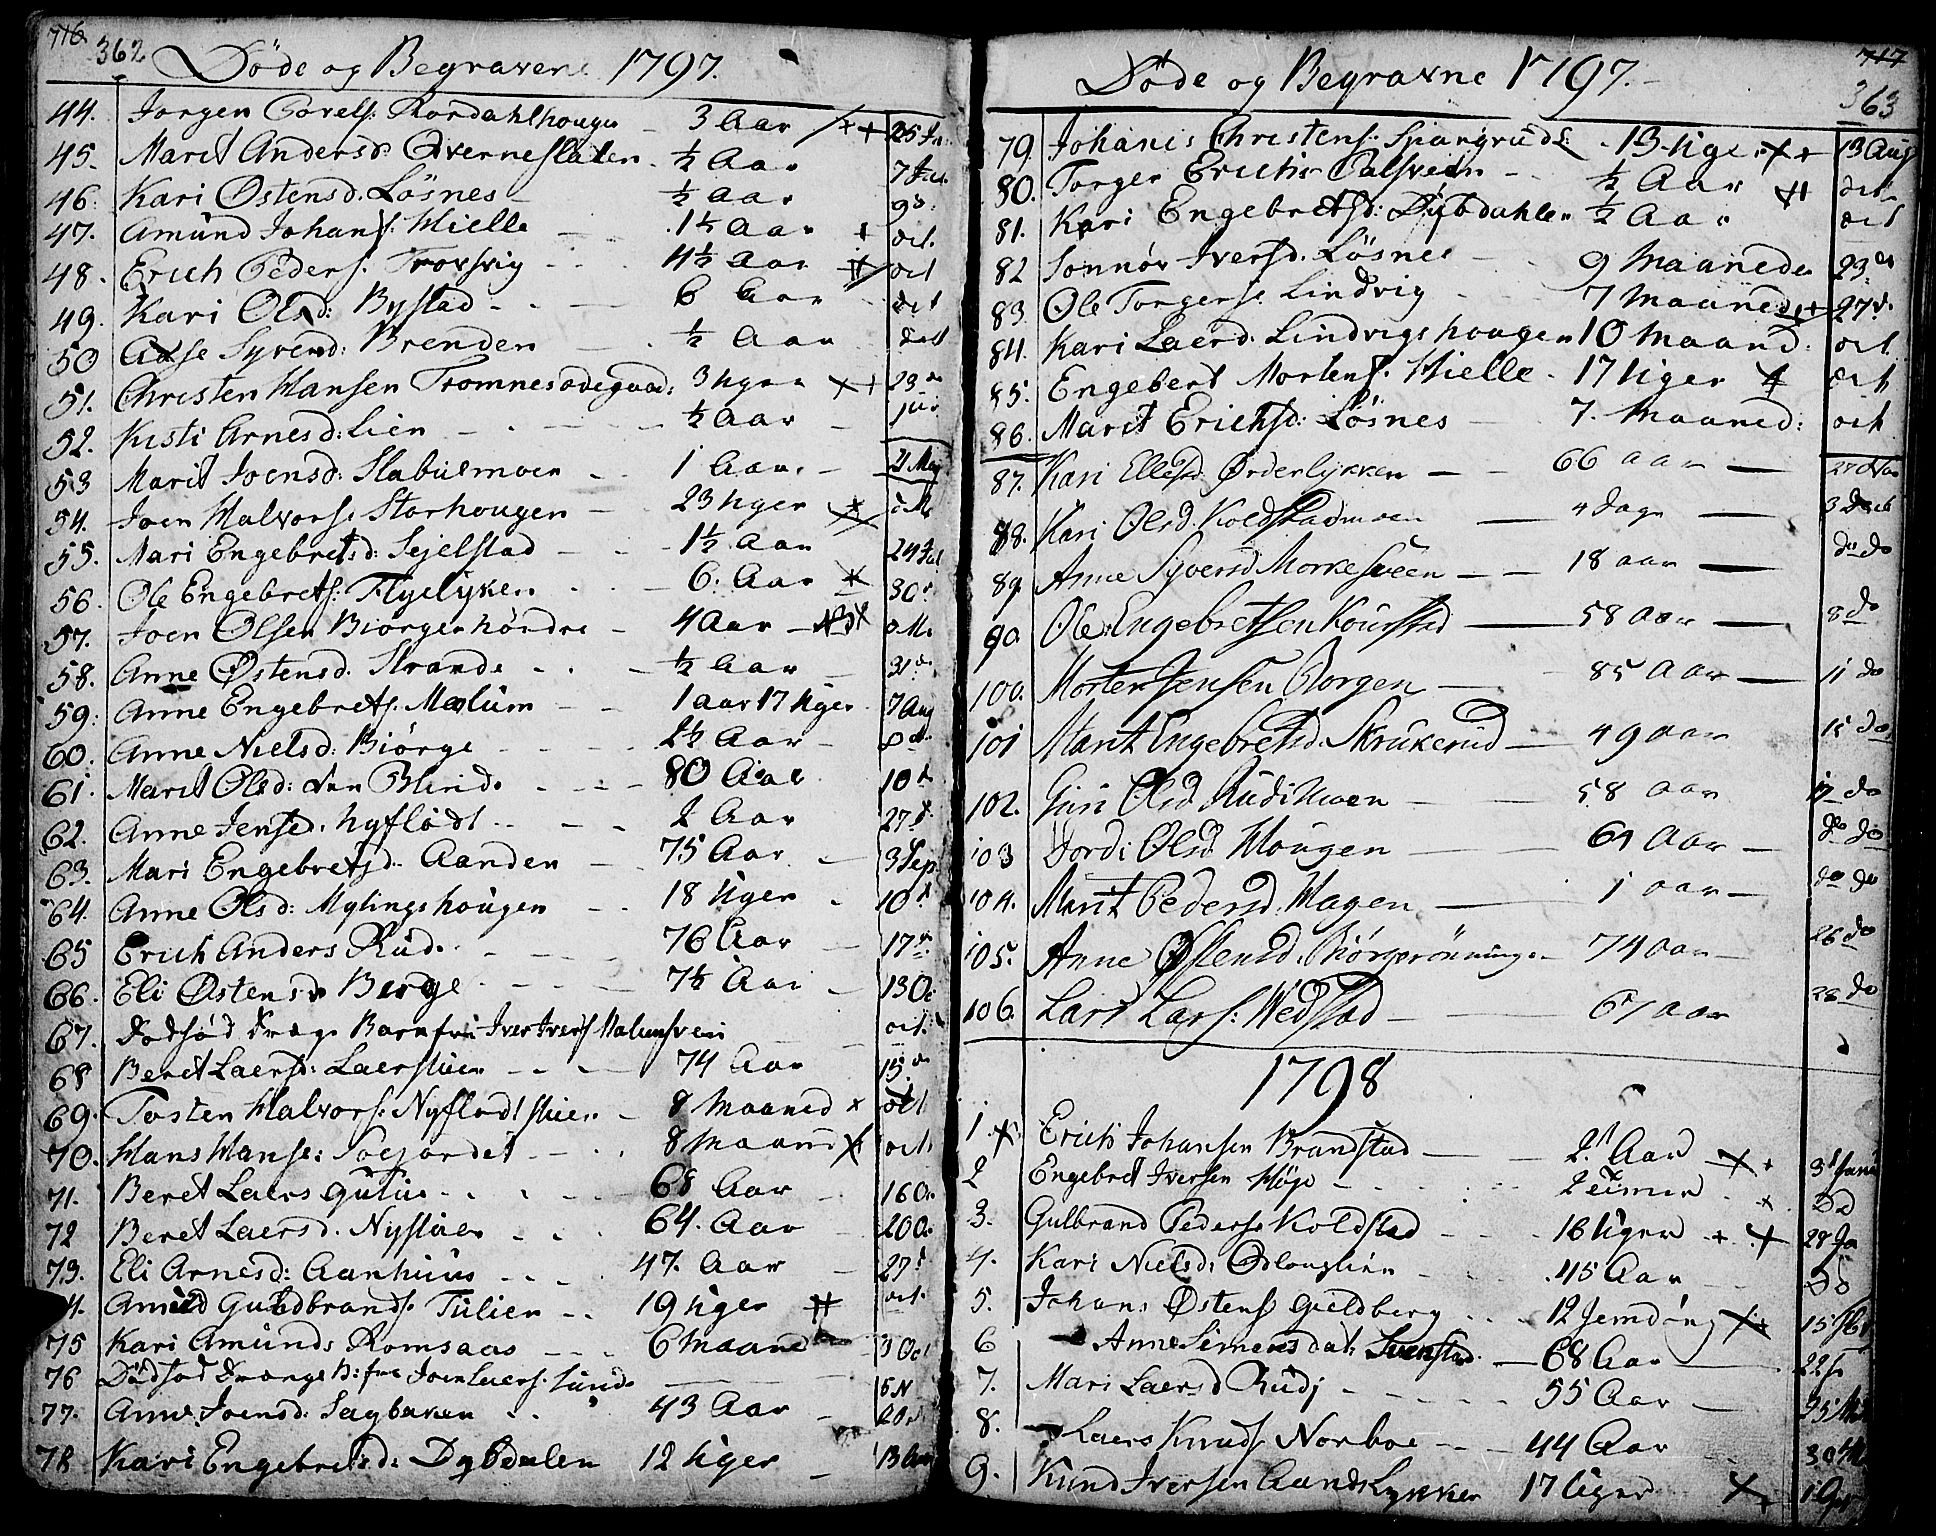 716
362
Döde og Begravene 1797.
44. Jorgen Povels: Rordahlhougen 3 Aar 25 Jun
45. Marit Andersd: Qverneflaten ½ Aar 7 Jul
46. Kari Østensd. Løsnes ½ Aar 9d.
47. Amund Johans. Hielle 1½ Aar dit.
48. Erich Peders: Trovsvig 4½ Aar dit
49. Kari Olsd: Bystad 6 Aar dit
50 Aase Syversd: Brenden ½ Aar dit
51. Christen Hansen Tromnesødegaard: 3 Uger 23
52. Kisti Arnesd: Lien ½ Aar
53 Marit Joensd: Stabuesmoen 1 Aar
54. Joen Halvors. Storhougen 23 Uger dito
55. Mari Engebretsd: Sejelstad 1½ Aar 24 Jul
56. Ole Engebrets: Flyelyken 6 Aar 30
57. Joen Olsen Biørgenhöndre 4 Aar
58. Anne Østensd. Strande ½ Aar 31
59: Anne Engebrets. Mælum 1 aar 17 Uger 7 Aug
60. Anne Nielsd: Biørge 2½ Aar
61. Marit Olsd: den Blinde 80 Aar 10
62. Anne Jensd. Nyflødt 2 Aar 27d
63. Mari Engebretsd: Aanden 75 Aar 3 Sep
64. Anne Olsd: Mylingshougen 18 Uger 10
65 Erich Anders Rud 76 Aar 17
66. Eli Østensd Berge 7½ Aar 13 Oc
67. Dødfød Drenge Barn fra Iver Ivers Malumsveen dit.
68 Beret Laersd: Laerstuen 74 Aar 15
69. Tosten Halvors: Nyflødtstuen 8 Maaned dit
70. Hans Hanse: Soejordet 8 Maaned dit
71. Beret Laers Gutue 68 Aar 16 Oc
72 Beret Laersd. Nystuen 64. Aar 20 Oc
73. Eli Arnesd: Aanhuus 47. Aar 27
4. Amund Guldbrands. Tulien 19 Uger dit.
75 Kari Amunds Romsaas 6 Maaned 3 Oct
76 Dødfød Drenge B: fra Joen Laers: Lunde 5 N
77. Anne Joensd: Sagbaken 43 Aar 20
78 Kari Engebretsd: Dybdalen 12 Uger 13
717
363
Döde og Begravne 1797.
79. Johanis Christens: Spangrud 13 Uger 13 Aug
80. Torger Erichs Palsveen ½ Aar dit
81. Kari Engebretsd: Dybdahlen ½ Aar dit
82 Sonnov Iversd. Løsnes 9 Maaneder 23
83. Ole Torgerse Lindvig 7 Maaned 27d.
84. Kari Laersd. Lindvigshougen 10 Maaned: dit
85. Engebert Mortens. Hielle 17 Uger dit
86. Marit Erichsd: Løsnes 7 Maaned: dit
87. Kari Ellefsd Ørderlykken 66 aar
88. Kari Olsd. Koldstadmoen 4 dage 3 Decb
89 Anne Syversd Morkesveen 18 aar do do
90. Ole Engebretsen Kourstad 58 aar 8 do
100. Morten Jensen Borgen 85 aar 11 do
101 Marit Engebretsd. Skrukerud 49 aar 15 do
102. Guri Olsd Rudi Moen 58 aar 17 do
103 Jordi Olsd Hougen 61 aar do do
104. Marit Pedersd. Hagen 1 aar do do
105. Anne Østensd. Biørgerönninge 74 aar 26 do
106. Lars Lars: Wedstad 67 aar 28 do
1798
1 Erich Johansen Brandstad 21 Aar 3
2 Engebret Iversen Höge 2 timer Do
3. Gulbrand Peders Koldstad 16 Uger 28 Ja
4. Kari Nielsd: Odlouglien 45 Aar Do
5. Johans Østens Gieldberg 12 15
6 Anne Simensdat: Svenstad 68 Aar 22
7. Mari Laersd Rudj 55 Aar 25
8. Laers Knuds Norboe 44 Aar 30
9. Knud Iversen Aandslykken 17 Uger 1